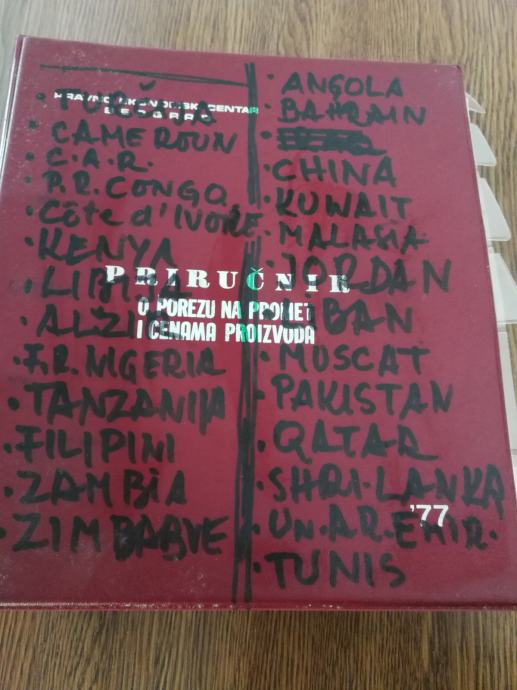 PRAVNO EKONOMSKI CENTAR
BEOGRAD
PRIRUČNIK
O POREZU NA PROMET
I CENAMA PROIZVODA
'77
· CAMEROUN
· C.A.R.
· P.R. CONGO
· Côte d'IVOIRE
· KENYA
· LIBIJA
· ALŽIR
· F.R. NIGERIA
· TANZANIJA
· FILIPINI
· ZAMBIA
· ZIMBABVE
· ANGOLA
· BAHRAIN
· CHINA
· KUWAIT
· MALASIA
· JORDAN
· LIBAN
· MUSCAT
· PAKISTAN
· QATAR
· SHRI-LANKA
· UN.AR.EMIR.
· TUNIS